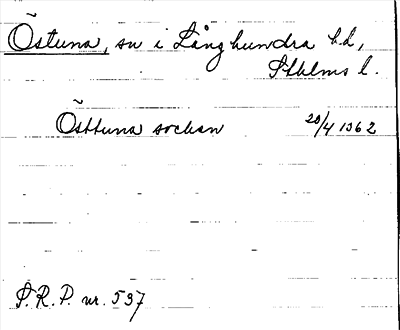 Östuna, sn i Långhundra hd,
Sthlms l.
Östtuna sockan 20/4 1362
S.R.P. nr. 537